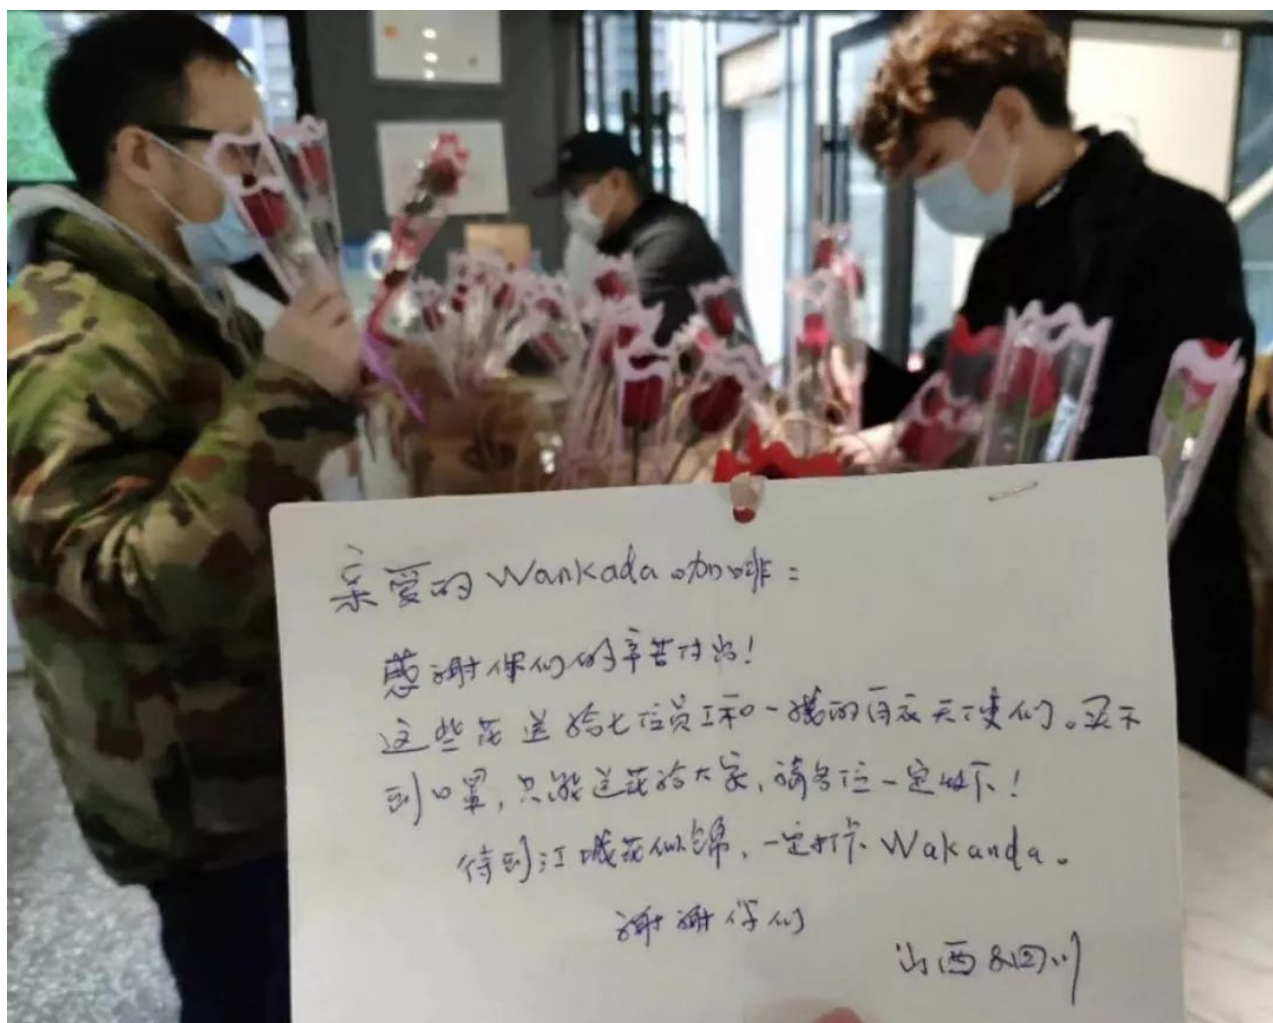 亲爱的Wankada咖啡：
感谢你们的辛苦付出!
这些花送给七位员工和一线的白衣天使们。买不
到口罩,只能送花给大家,请各位一定收下!
待到江城花似锦,一定打卡Wakanda。
谢谢你们
山西&四川